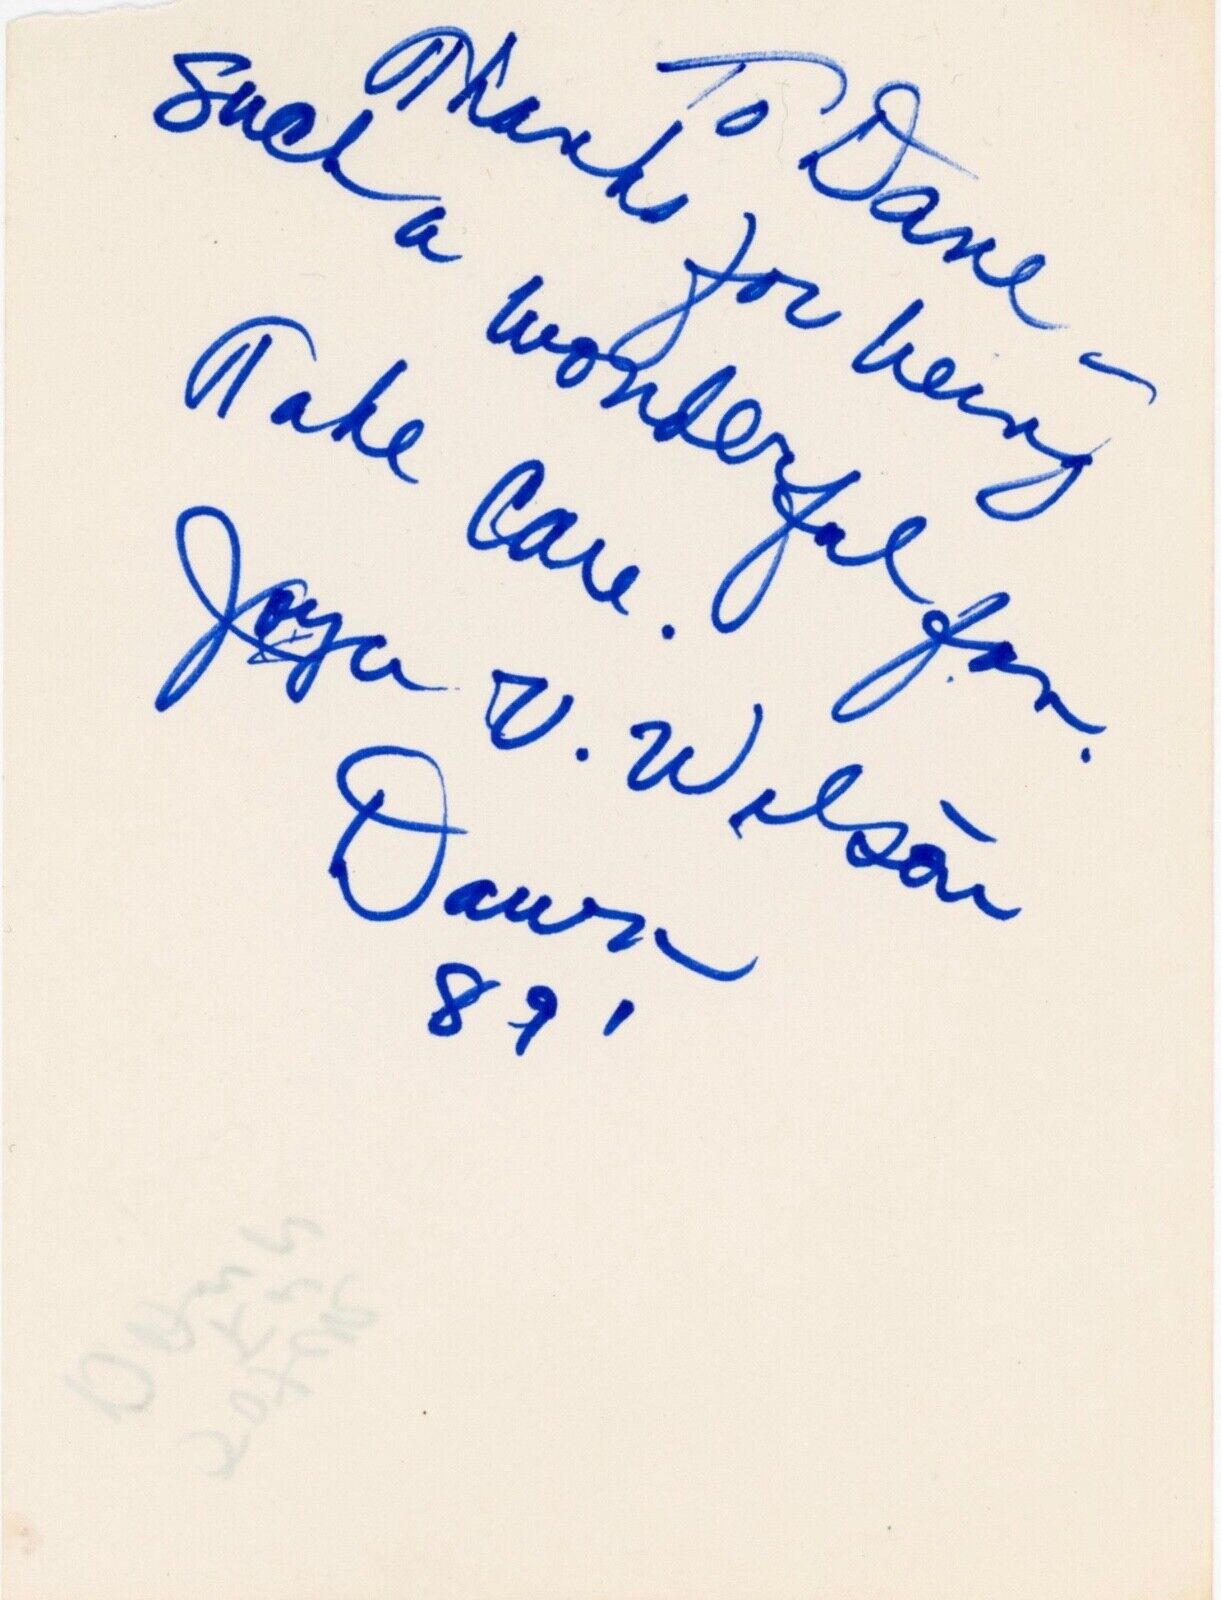 To Dane -
Thanks for being
such a wonderful fan.
Take Care.
Joyce V. Wilson
Dawn
89'